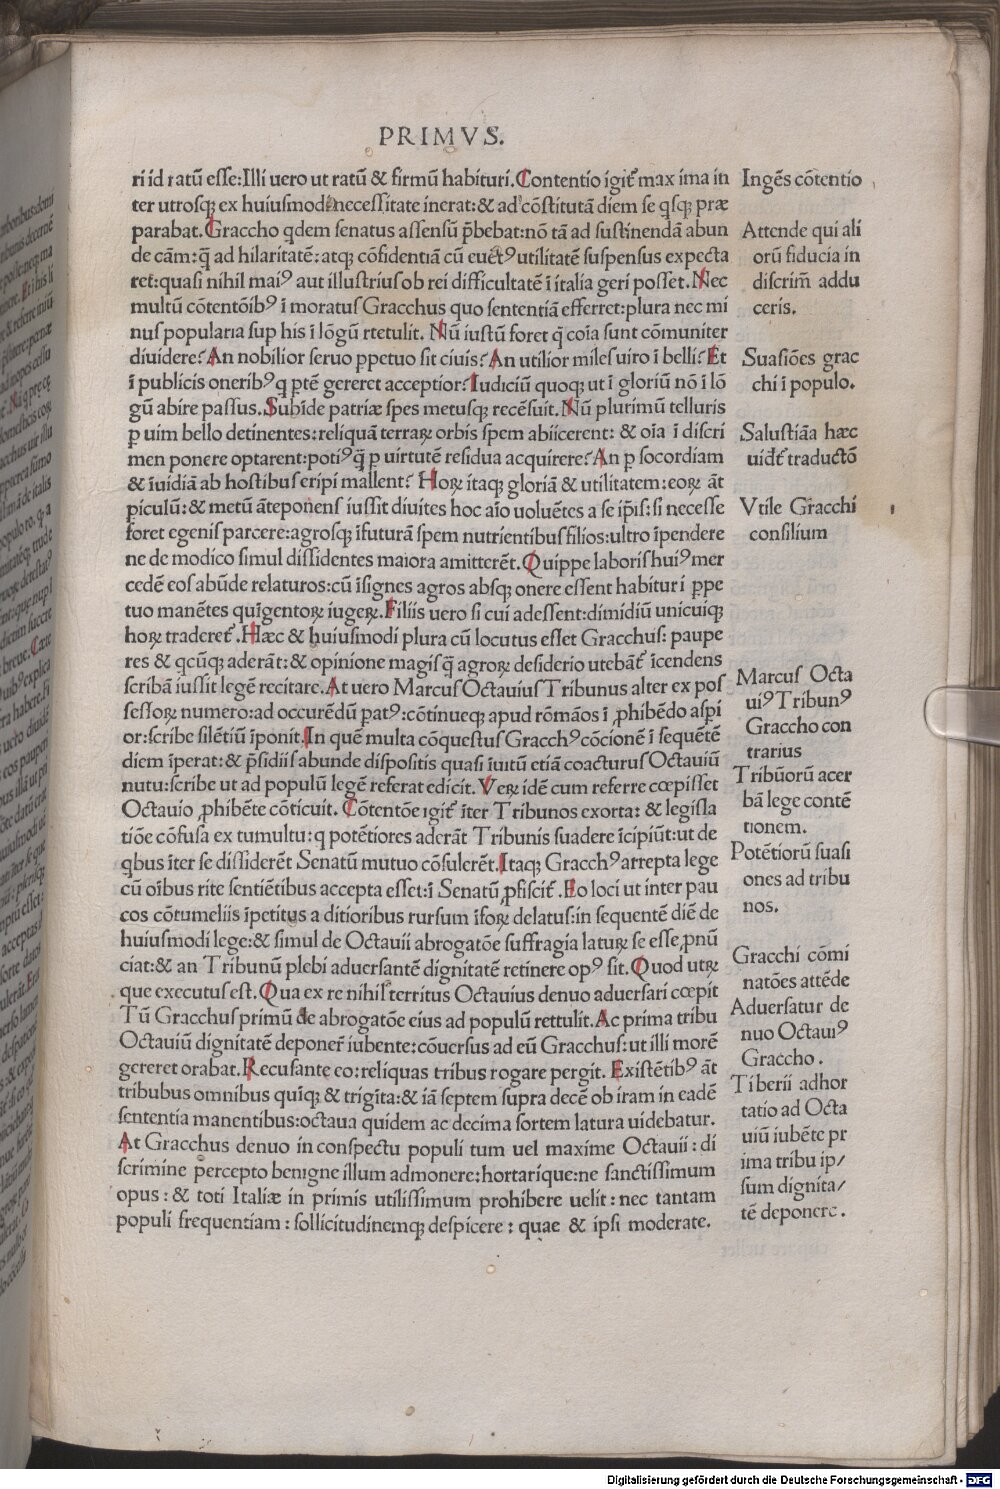 PRIMVS.
ri id ratū esse:Illi uero ut ratū & firmū habituri.Contentio igit᷑ maxima in
ter utrosq; ex huiusmodi necessitate inerat:& ad cōstitutā diem se qsq; præ
parabat.Graccho qdem senatus assensū p̄bebat:nō tā ad sustinendā abun
de cām:q̄ ad hilaritatē:atq; cōfidentiā cū euētꝰ utilitatē suspensus expecta
ret:quasi nihil maiꝰ aut illustrius ob rei difficultatē ī italia geri posset.Nec
multū cōtentōibꝰ ī moratus Gracchus quo sententiā efferret:plura nec mi
nus popularia sup his ī lōgū rtetulit. Nū iustū foret q̄ coīa sunt cōmuniter
diuidere?An nobilior seruo ꝑpetuo sit ciuis?An utilior miles uiro ī belli?Et
ī publicis oneribꝰ q ꝑtē gereret acceptior?Iudiciū quoq; ut ī gloriū nō ī lō
gū abire passus.Subīde patriæ spes metusq; recēsuit.Nū plurimū telluris
ꝑ uim bello detinentes:reliquā terraꝝ orbis spem abiicerent: & oīa ī discri
men ponere optarent:potiꝰ q̄ ꝑ uirtutē residua acquirere?An ꝑ socordiam
& īuidiā ab hostibus eripi mallent? Hoꝝ itaq; gloriā & utilitatem:eoꝝ āt
piculū:& metū āteponens iussit diuites hoc aīo uoluētes a se ip̄is:si necesse
foret egenis parcere:agrosq; īfuturā spem nutrientibus filios:ultro īpendere
ne de modico simul dissidentes maiora amitterēt.Quippe laboris huiꝰ mer
cedē eos abūde relaturos:cū īsignes agros absq; onere essent habituri ꝑpe
tuo manētes quīgentoꝝ iugeꝝ.Filiis uero si cui adessent:dimidiū unicuiq;
hoꝝ traderet᷑.Hæc & huiusmodi plura cū locutus esset Gracchus: paupe
res & qcūq; aderāt:& opinione magisq̄ agroꝝ desiderio utebāt᷑ īcendens
scribā iussit legē recitare.At uero Marcus Octauius Tribunus alter ex pos
sessoꝝ numero:ad occurēdū patꝰ:cōtinueq; apud rōmāos ī ꝓhibēdo asp̄i
or:scribe silētiū īponit.In quē multa cōquestus Gracchꝰ cōcionē ī sequētē
diem īperat:& p̄sidiis abunde dispositis quasi īuitū etiā coacturus Octauiū
nutu:scribe ut ad populū legē referat edicit. Veꝝ idē cum referre cœpisset
Octauio ꝓhibēte cōticuit. Cōtentōe igit᷑ īter Tribunos exorta: & legisla
tiōe cōfusa ex tumultu:q potētiores aderāt Tribunis suadere īcipiūt:ut de
qbus īter se dissiderēt Senatū mutuo cōsulerēt.Itaq; Gracchꝰ arrepta lege
cū oībus rite sentiētibus accepta esset:ī Senatū ꝓfiscit᷑.Eo loci ut inter pau
cos cōtumeliis īpetitus a ditioribus rursum īfoꝝ delatus:in sequentē diē de
huiusmodi lege:& simul de Octauii abrogatōe suffragia latuꝝ se esse ꝓnū
ciat:& an Tribunū plebi aduersantē dignitatē retinere opꝰ sit.Quod utꝝ
que executus est.Qua ex re nihil territus Octauius denuo aduersari cœpit
Tū Gracchus primū de abrogatōe eius ad populū rettulit.Ac prima tribu
Octauiū dignitatē deponer̄ iubente:cōuersus ad eū Gracchus:ut illi morē
gereret orabat.Recusante eo:reliquas tribus rogare pergit. Existētibꝰ āt
tribubus omnibus quīq; & trigīta:& iā septem supra decē ob iram in eadē
sententia manentibus:octaua quidem ac decima sortem latura uidebatur.
At Gracchus denuo in conspectu populi tum uel maxime Octauii: di
scrimine percepto benigne illum admonere:hortarique:ne sanctissimum
opus: & toti Italiæ in primis utilissimum prohibere uelit: nec tantam
populi frequentiam: sollicitudinemq; despicere: quae & ipsi moderate.
Ingēs cōtentio
Attende qui ali
orū fiducia in
discrim̄ addu
ceris.
Suasiōes grac
chi ī populo.
Salustiāa hæc
uidēt᷑ traductō
Vtile Gracchi
consilium
Marcus Octa
uiꝰ Tribunꝰ
Graccho con
trarius
Tribūorū acer
bā lege contē
tionem.
Potētiorū suasi
ones ad tribu
nos.
Gracchi cōmi
natōes attēde
Aduersatur de
nuo Octauiꝰ
Graccho.
Tiberii adhor
tatio ad Octa
uiū iubēte pr
ima tribu ip/
sum dignita/
tē deponere.
Digitalisierung gefördert durch die Deutsche Forschungsgemeinschaft - DFG